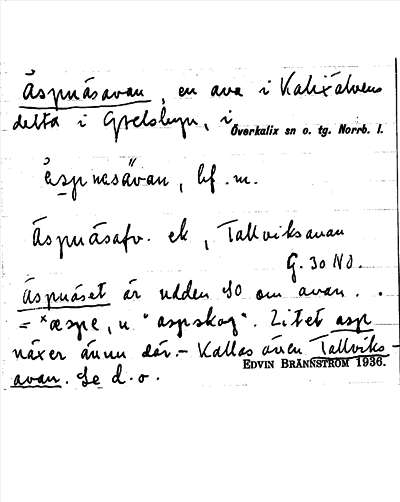 Äspnäsavan, en ava i Kalixälvens
delta i Grelsbyn, i
Överkalix sn o. tg. Norrb. l.
äspnesävan, bf. m.
Äspnäsafv. ek, Tallviksavan
G. 30 NO.
Äspnäset är udden SO om avan.
= *æspe, n "aspskog". Litet asp
växer ännu där.- Kallas även Tallviks-
avan. Se d. o.
EDVIN BRÄNNSTRÖM 1936.